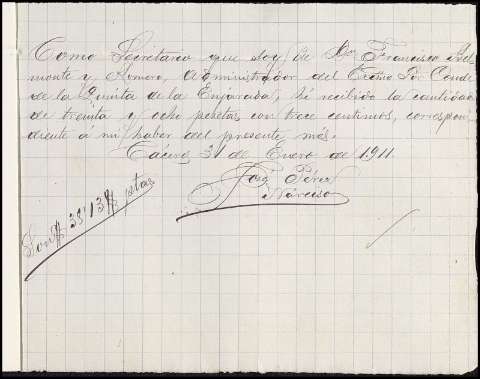 Como Secretario que soy de Dn Francisco Bel
monte y Romero, Administrador del Excmo Sr Conde
de la Quinta de la Enjarada, hé recibido la cantidad
de treinta y ocho pesetas con trece centimos, correspon
diente á mi haber del presente mes.
Cáceres 31 de Enero de 1911.
José Pérez
Narciso
Son 38'13 ptas